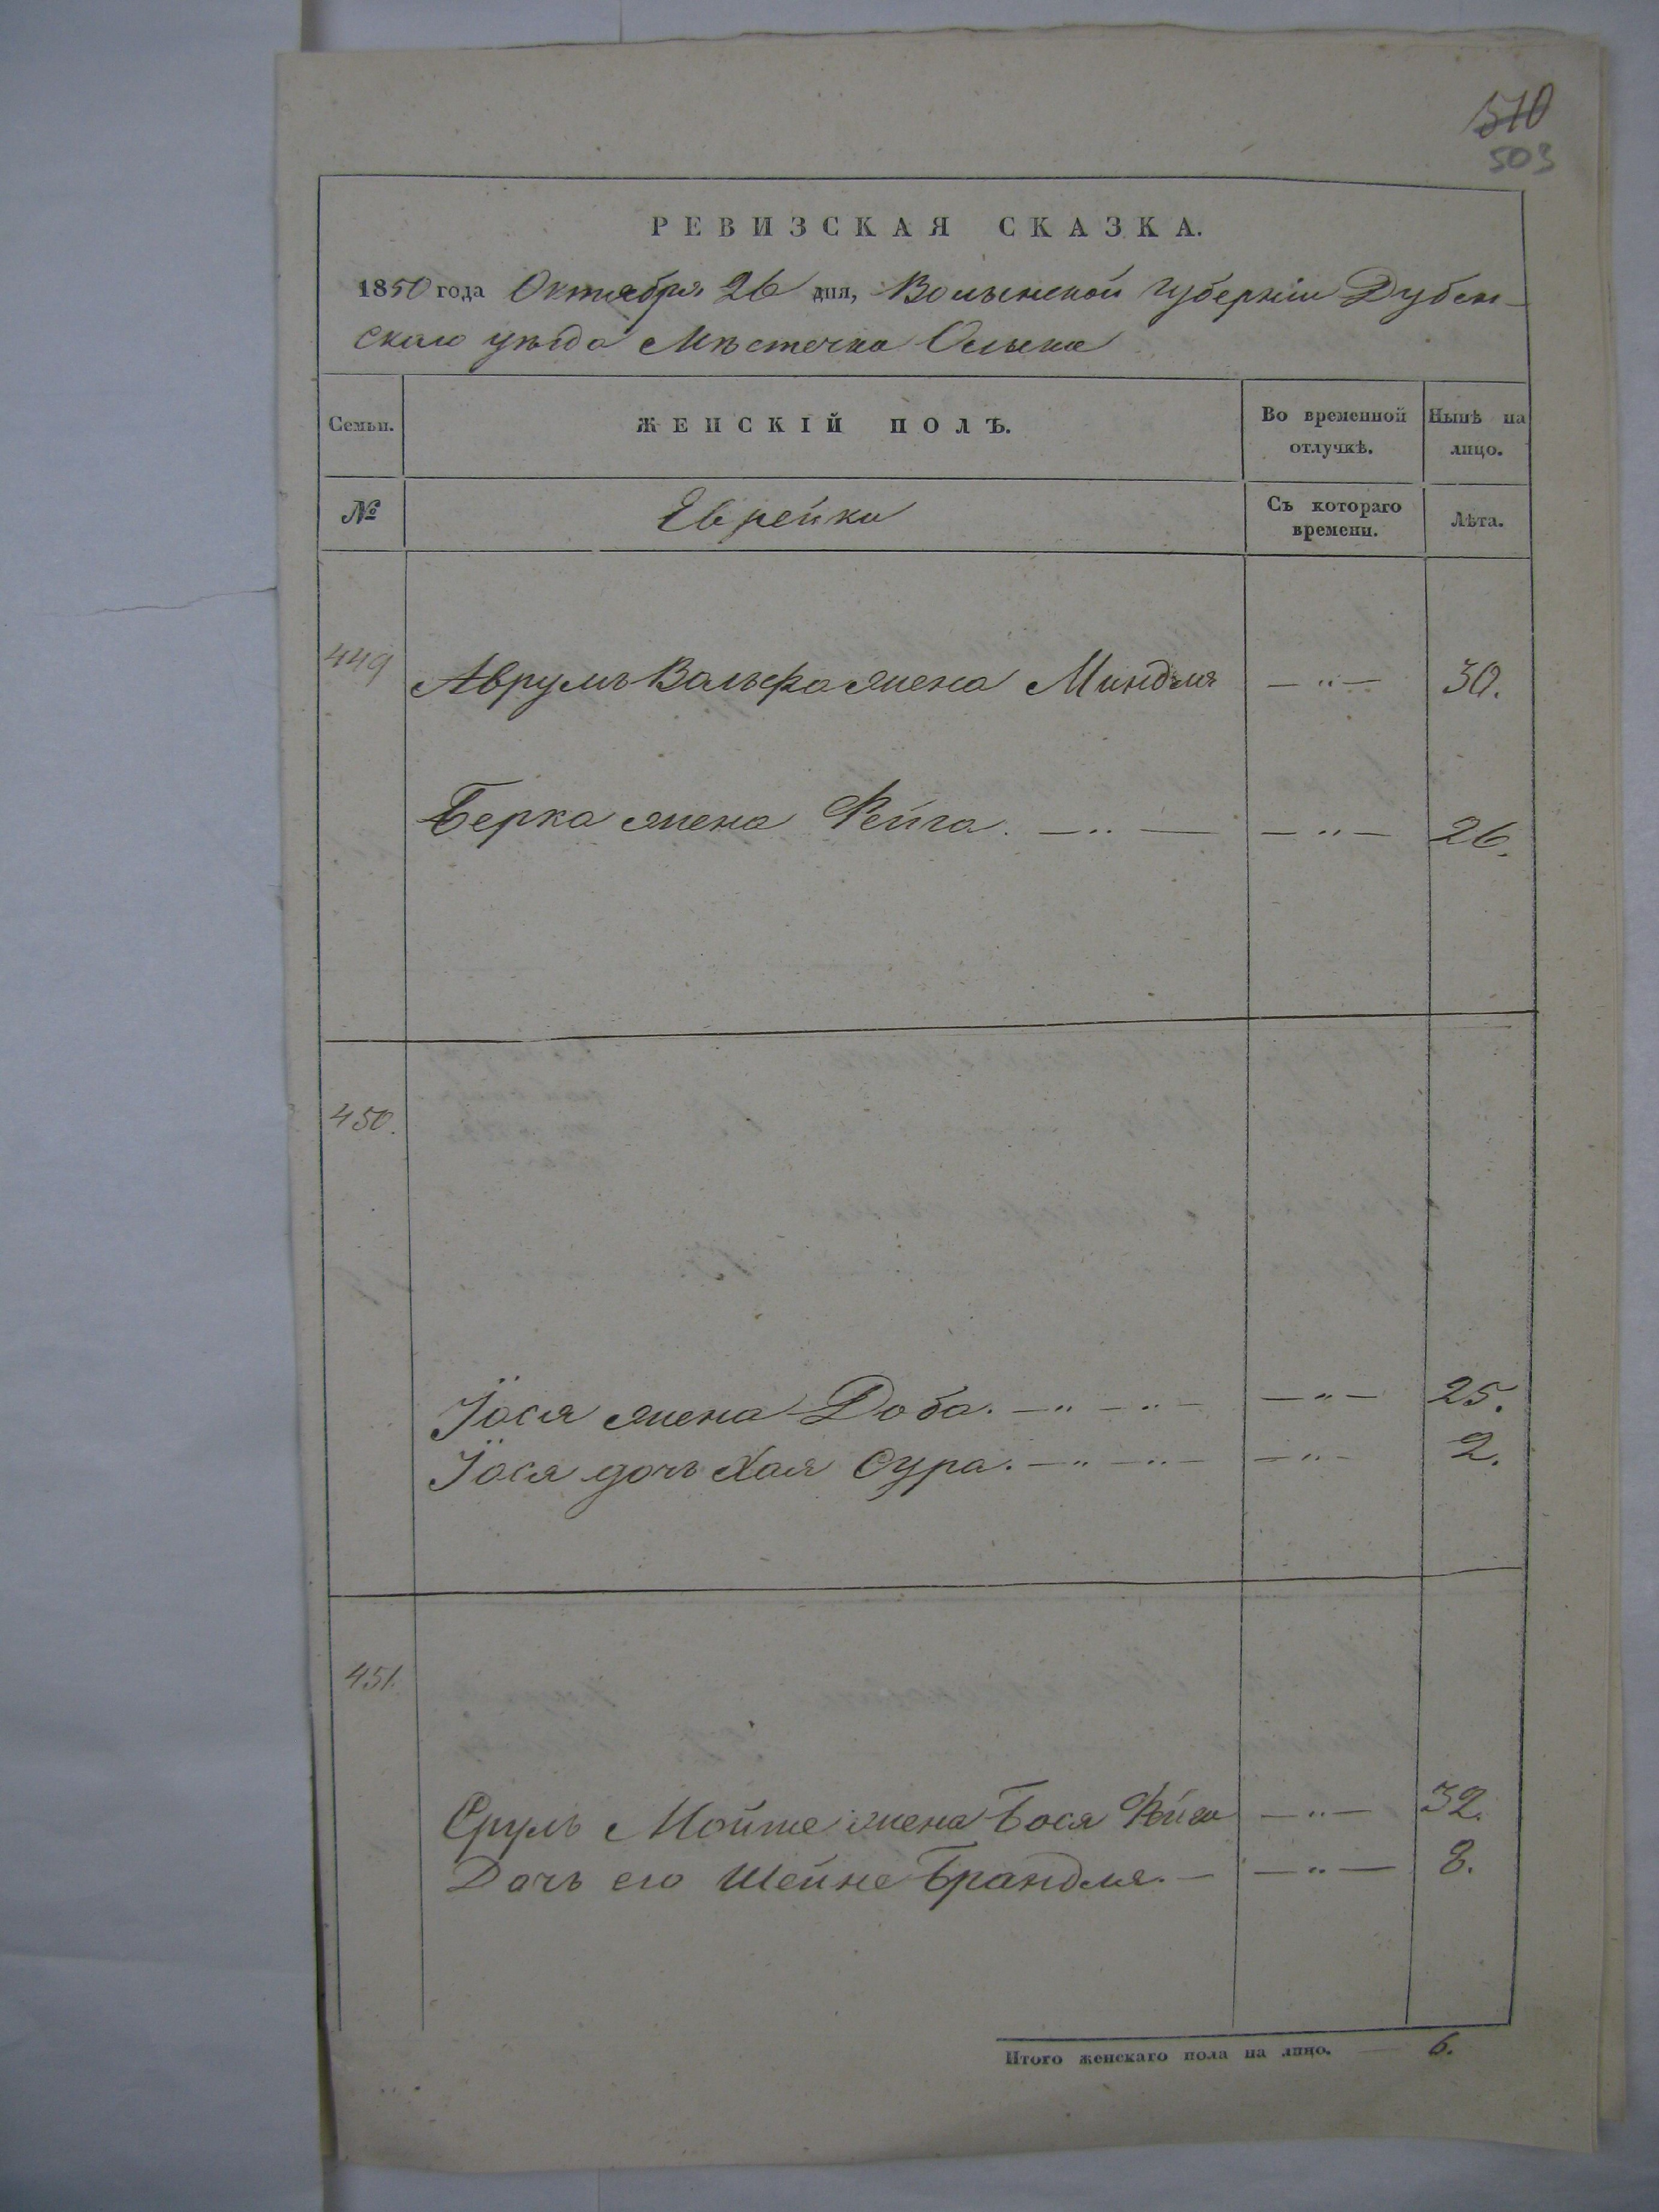 510
503
РЕВИЗСКАЯ СКАЗКА.
1850 года Октября 26 дня, Волынской губерніи Дубен-
скаго уѣзда Мѣстечка Олыка
Семьи. ЖЕНСКІЙ ПОЛЪ. Во временной отлучкѣ. Нынѣ на лицо.
№ Еврейки Съ котораго времени. Лѣта.
449 Аврумъ Вольфа жена Миндля — " — 30.
Берка жена Фейга. — " — — " — 26.
450.
Іося жена Доба. — " — " — — " — 25.
Іося дочь Хая Сура. — " — " — — " — 2.
451.
Сруль Мойше жена Бося Фейга — " — 32.
Дочь его Шейне Брандля. — — " — 8.
Итого женскаго пола на лицо. — 6.